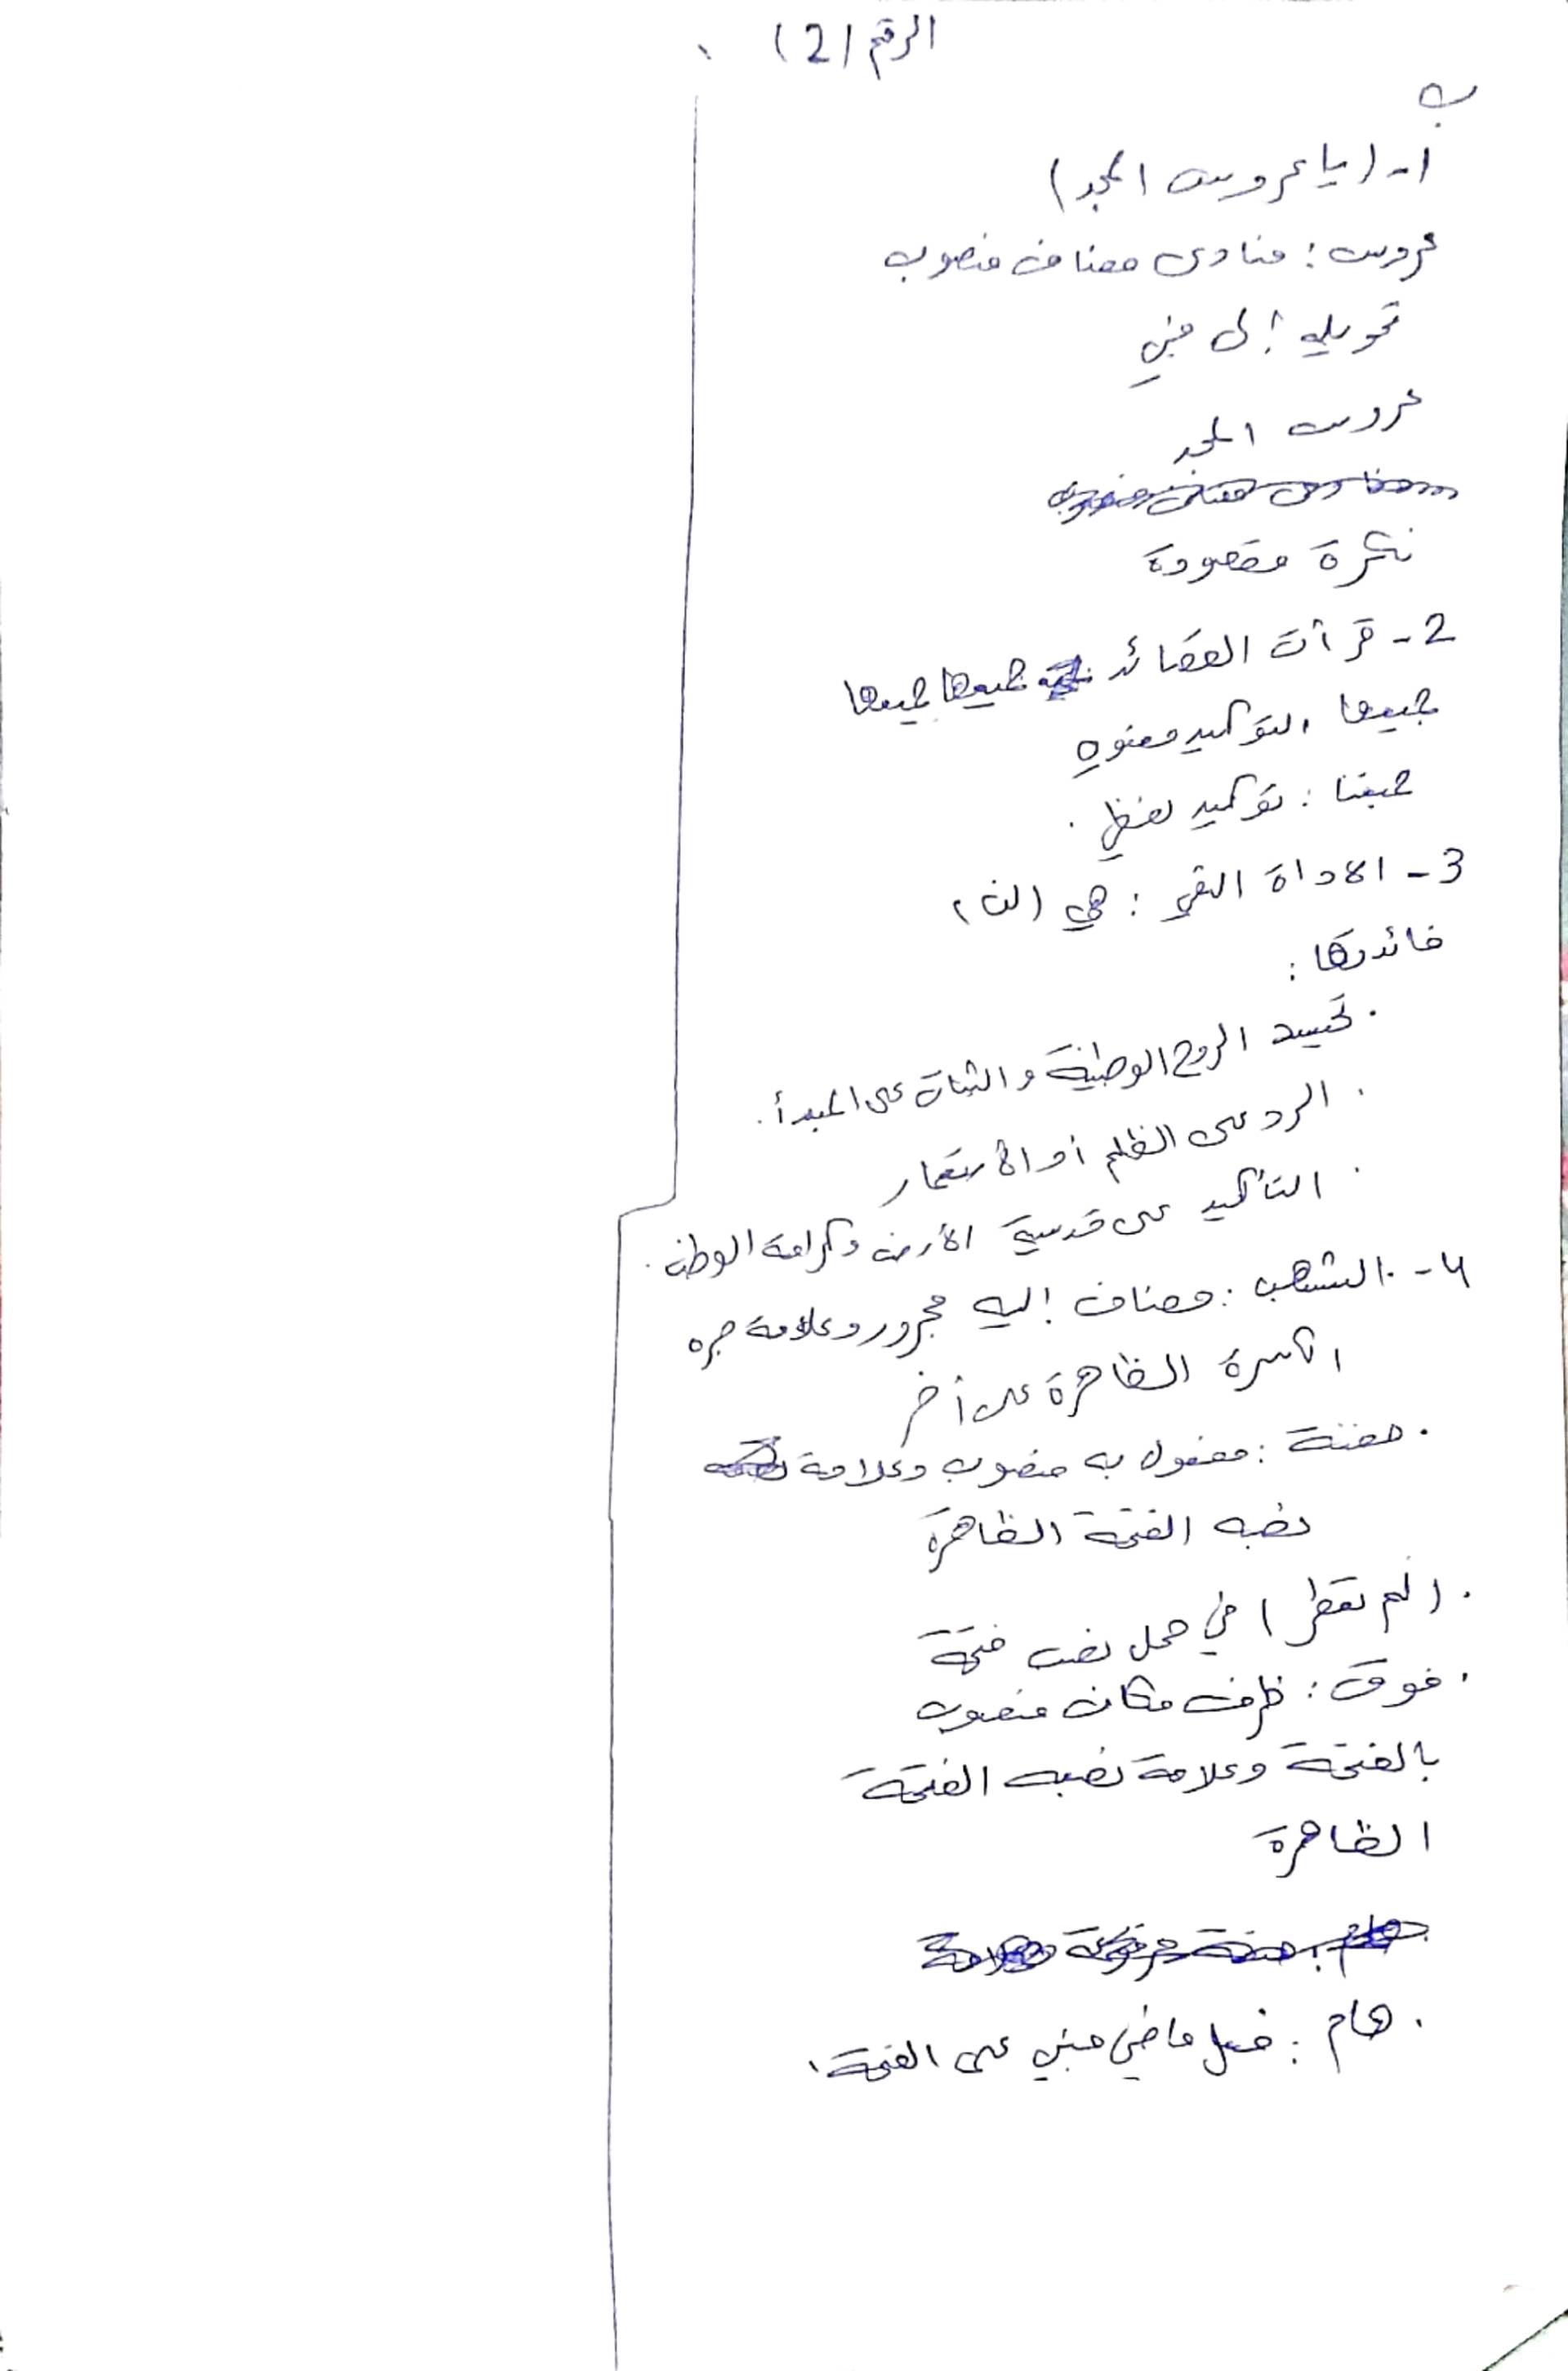 الرقم (2)
ب
1- (يا عروس المجد)
عروس: منادى مضاف منصوب
تحويله إلى مبني
عروس المجد
نكرة مقصودة
2- قرأت القصائد جميعها جميعها
جميعها التوكيد معنوي
جميعنا: توكيد لفظي.
3- الاداة النفي: هي (لن)
فائدتها:
. تجسيد الروح الوطنية والثبات على المبدأ.
. الرد على الظلم أو الأستعمار
. التأكيد على قدسية الأرض وكرامة الوطن.
4- . الشهب: مضاف إليه مجرور وعلامة جره
الكسرة الظاهرة على أخر
. مفعول به منصوب وعلامة
نصبه الفتحة الظاهرة
. (لم تقطر) في محل نصب فتحة
. فوق: ظرف مكان منصوب
بالفتحة وعلامة نصبه الفتحة
الظاهرة
. هام: فعل ماضي مبني على الفتحة.